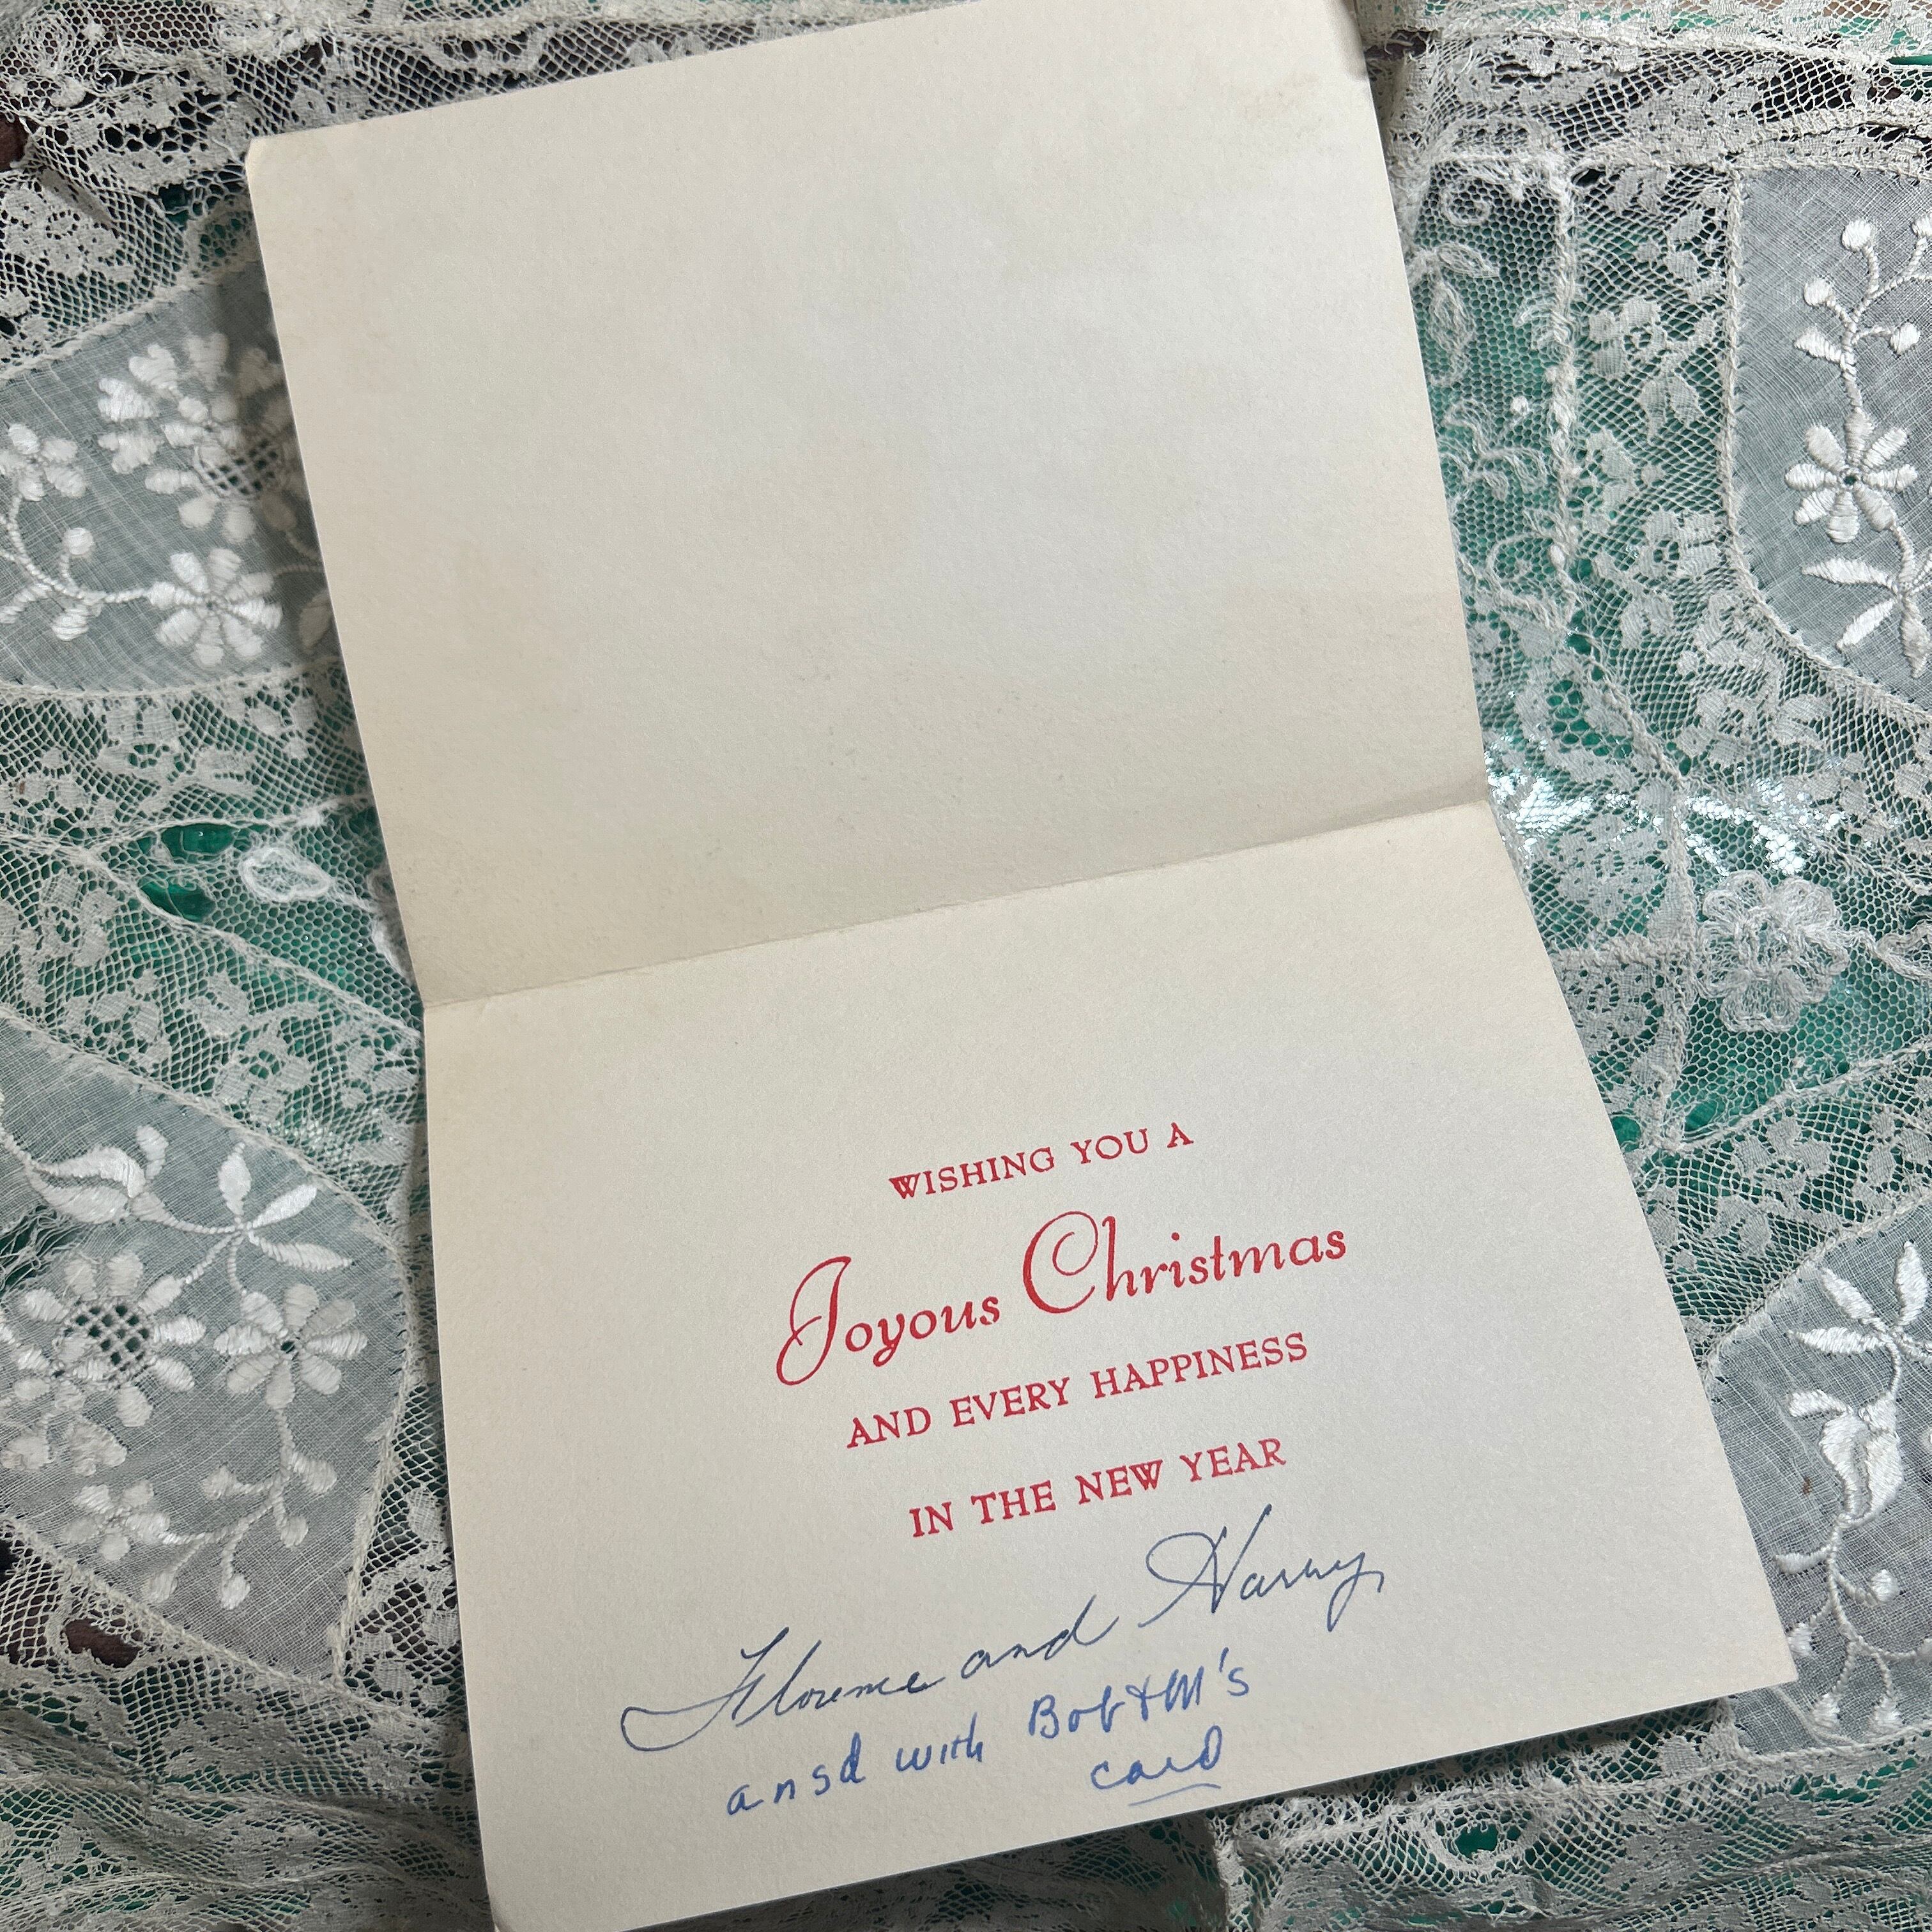 WISHING YOU A
Joyous Christmas
AND EVERY HAPPINESS
IN THE NEW YEAR
Florence and Harry
ansd with Bob + M's
card